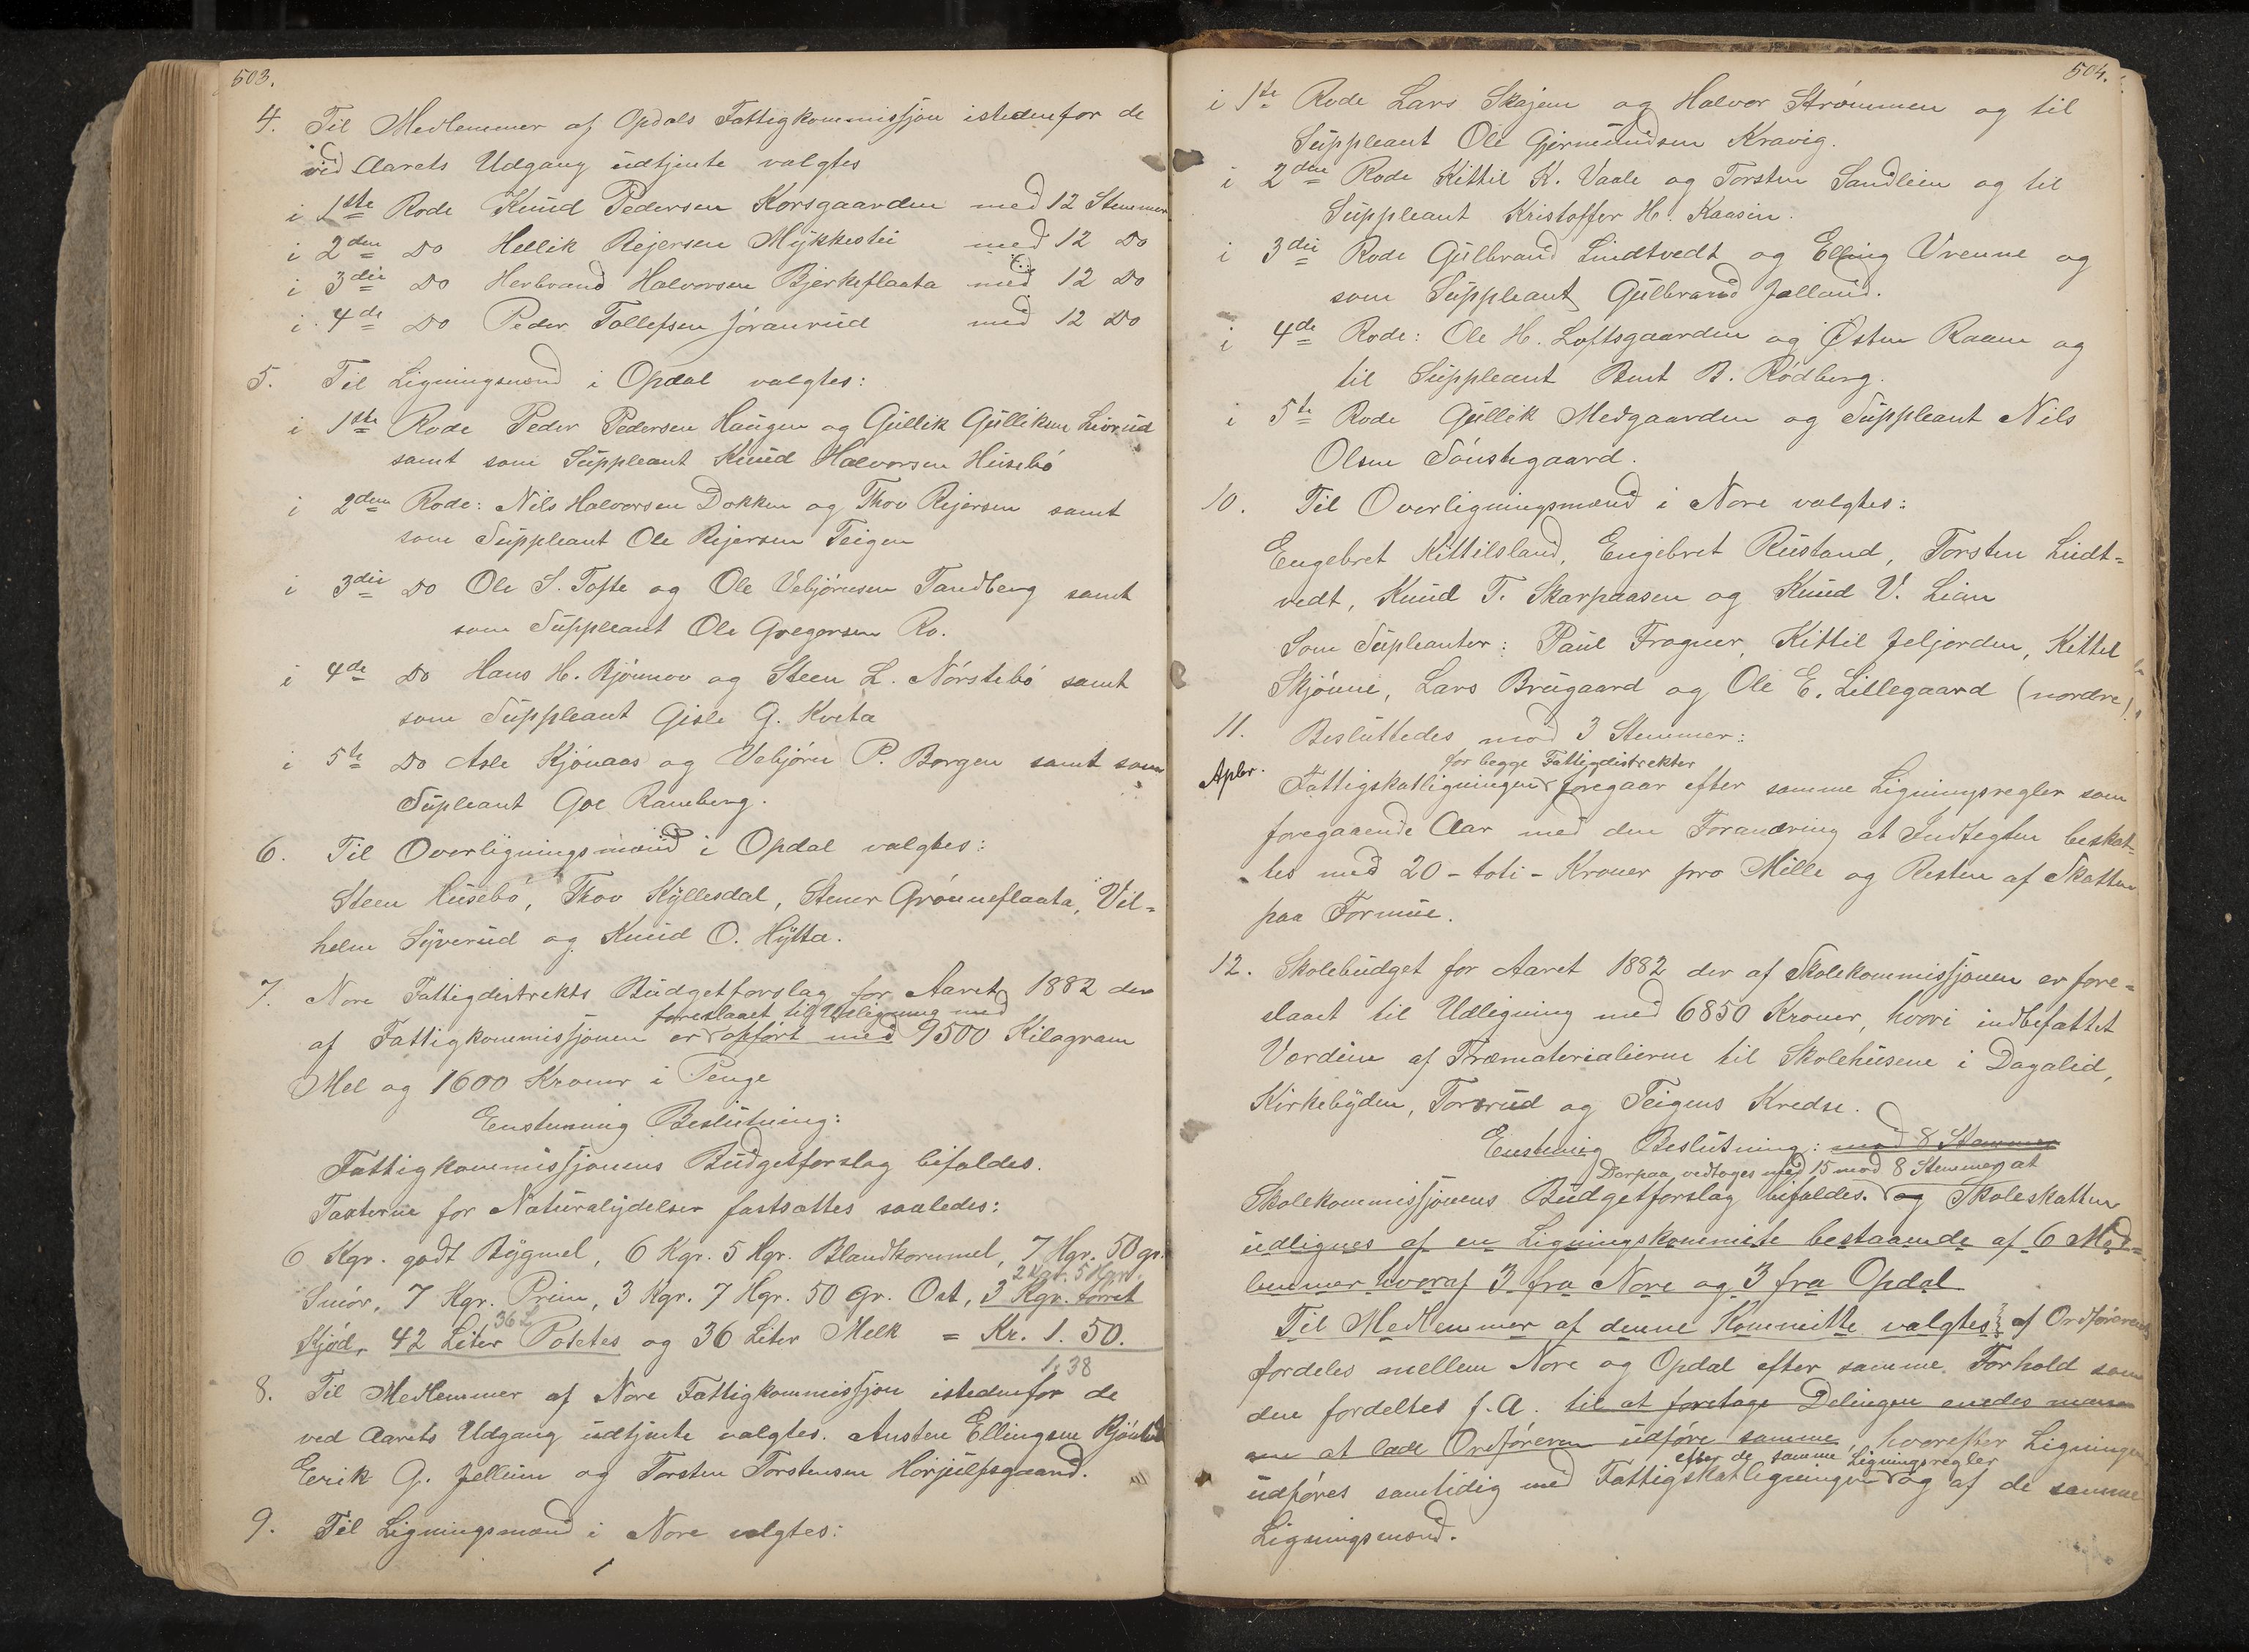 503.
4. Til Medlemmer af Opdals Fattigkommissjon istedenfor de
ved Aarets Udgang udtjente valgtes
i 1ste Rode Knud Pedersen Korsgaarden med 12 Stemmer
i 2den Do Hellik Rejersen Mykkestu med 12 Do
i 3die Do Herbrand Halvorsen Bjerkeflaata med 12 Do
i 4de Do Peder Tollefsen Jóranrud med 12 Do
5. Til Ligningsmænd i Opdal valgtes:
i 1ste Rode Peder Pedersen Haugen og Gullik Gulliksen Livrud
samt som Suppleant Knud Halvorsen Husebó
i 2den Rode: Nils Halvorsen Dokken og Thov Rejersen samt
som Suppleant Ole Rejersen Teigen
i 3die Do Ole S. Tofte og Ole Vebjórnsen Tandberg samt
som Suppleant Ole Gregersen Ro.
i 4de Do Hans H. Bjónnov og Steen L. Nórstebó samt
som Suppleant Gisle G. Kveta
i 5te Do Asle Kjónaas og Vebjórn P. Borgen samt som
Supleant Goe Ramberg.
6. Til Overligningsmænd i Opdal valgtes:
Steen Husebó, Thov Kyllesdal, Stener Grónneflaata, Vil=
helm Syverud og Knud O. Hytta.
7. Nore Fattigdistrikts Budgetforslag for Aaret 1882 der
foreslaaet til Udligning med
af Fattigkommissjonen er opfórt med 9500 Kilogram
Mel og 1600 Kroner i Penge
Enstemmig Beslutning:
Fattigkommissjonens Budgetforslag bifaldes.
Taxterne for Naturalydelser fastsættes saaledes:
6 Kgr. godt Bygmel, 6 Kgr. 5 Hgr. Blandkornmel, 7 Hgr. 50 gr.
2 Kgr. 5 Hgr.
Smór, 7 Kgr. Prim, 3 Kgr. 7 Hgr. 50 Gr. Ost, 3 Kgr. tórret
36 L
Kjód, 42 Liter Potetes og 36 Liter Melk = Kr. 1. 50.
1,38
8. Til Medlemmer af Nore Fattigkommissjon istedenfor de
ved Aarets Udgang udtjente valgtes. Austen Ellingsen
Eerik G. Jellum og Torsten Torstensen Hórjulfsgaard.
9. Til Ligningsmænd i Nore valgtes:
504.
i 1ste Rode Lars Skajem og Halvor Strómmen og til
Suppleant Ole Gjermundsen Kravig.
i 2den Rode Kittil K. Vaale og Torsten Sandleen og til
Suppleant Kristoffer H. Kaasin.
i 3die Rode Gulbrand Lindtvedt og Elling Vrenne og
som Suppleant Gulbrand Jalland.
i 4de Rode: Ole H. Loftsgaarden og Østen Raaen og
til Suppleant Bent B. Ródberg.
i 5te Rode Gullik Medgaarden og Suppleant Nils
Olsen Sónstegaard.
10. Til Overligningsmænd i Nore valgtes:
Engebret Kittilsland, Engebret Rustand, Torsten Lindt=
vedt, Knud T. Skarpaasen og Knud V. Lian
Som Supleanter: Paul Fragner, Kittil Jeljorden, Kittel
Skjónne, Lars Brugaard og Ole E. Lillegaard (nordre)
11. Besluttedes mod 3 Stemmer:
for begge Fattigdistrikter
Fattigskatligningen foregaar efter samme Ligningsregler som
foregaaende Aar med den Forandring at Indtegten beskat=
tes med 20 - toti - Kroner pro Mille og Resten af Skatten
paa Formue.
12. Skolebudget for Aaret 1882 der af Skolekommissjonen er fore=
slaaet til Udligning med 6850 Kroner, hvori indbefattet
Værdien af Træmaterialierne til Skolehusene i Dagalid,
Kirkebyden, Torsrud og Teigens Kredse.
Enstemig Beslutning: mod 8 Stemmer
Derpaa vedtoges med 15 mod 8 Stemmer at
Skolekommissjonens Budgetforslag bifaldes. og Skoleskatten
udlignes af en Ligningskommite bestaaende af 6 Med=
lemmer hvoraf 3 fra Nore og 3 fra Opdal
Til Medlemmer af denne Kommitte valgtes af Ordfóreren
fordeles mellem Nore og Opdal efter samme Forhold som
den fordeltes f. A. til at foretage Delingen enedes man
om at lade Ordfóreren udfóre samme, hvorefter Ligningen
efter de samme Ligningsregler
udfóres samtidig med Fattigskatligningen og af de samme
Ligningsmænd.